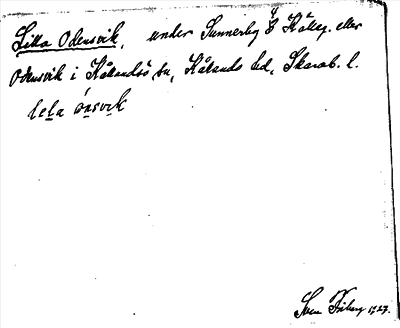 Lilla Odensvik, under Sunnerby i Kållsg. eller
Odensvik i Kållandsö sn, Kållands hd, Skarab. l.
lela ónsvik
Sven Friberg 1927.